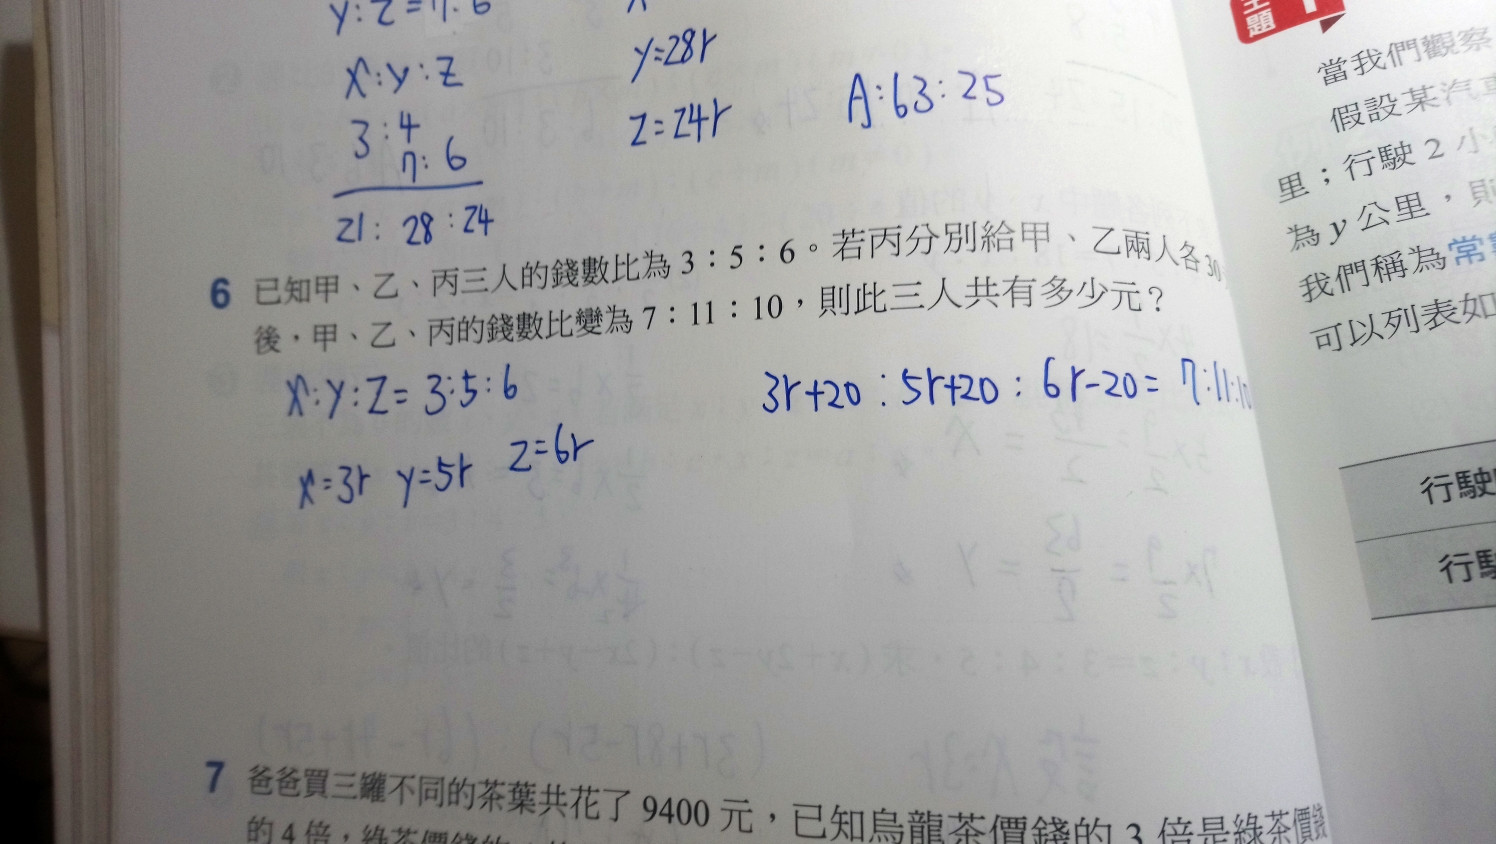 y:z=7:6
x:y:z
3:4
7:6
21:28:24
y=28r
z=24r
A:63:25
6 已知甲、乙、丙三人的錢數比為 3:5:6。若丙分別給甲、乙兩人各30
後,甲、乙、丙的錢數比變為 7:11:10,則此三人共有多少元?
x:y:z=3:5:6
x=3r y=5r z=6r
3r+20:5r+20:6r-20=7:11:10
7 爸爸買三罐不同的茶葉共花了 9400 元,已知烏龍茶價錢的 3 倍是綠茶價錢
的 4 倍,綠茶價錢的
主題1
當我們觀察
假設某汽車
里;行駛 2 小
為 y 公里,則
我們稱為常
可以列表如
行駛
行駛